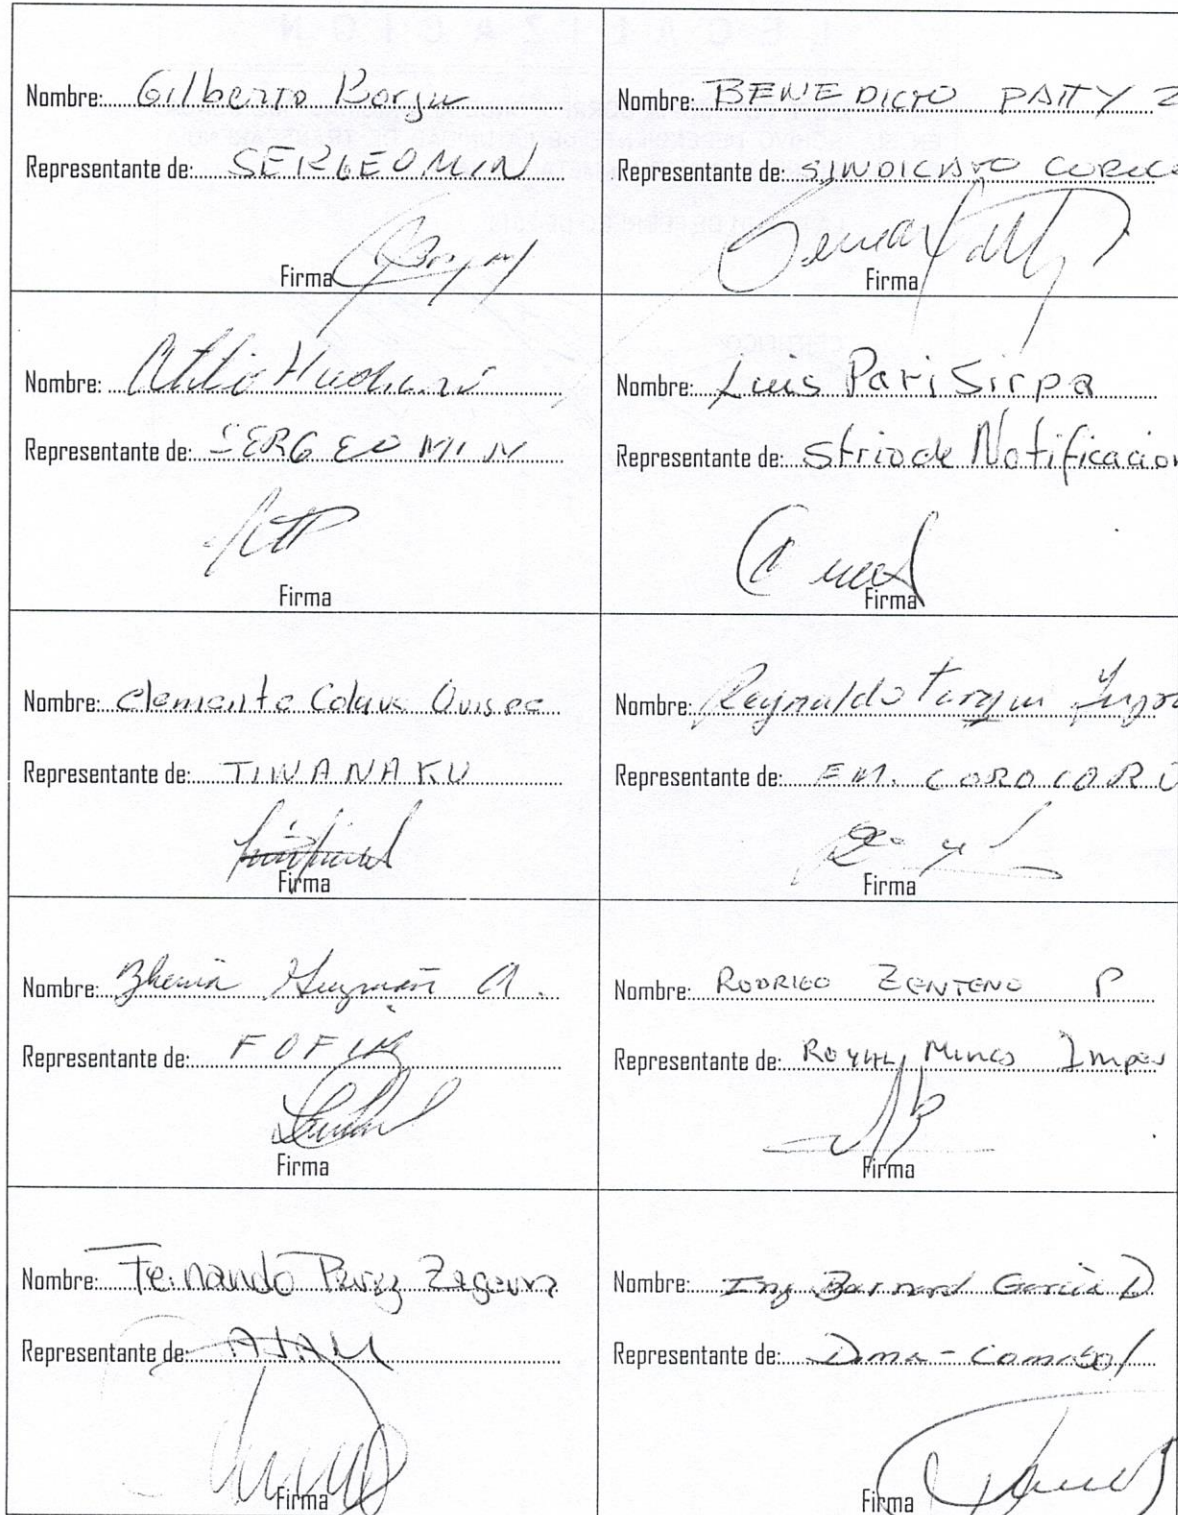 Nombre: Gilberto Borja
Representante de: SERGEOMIN
Firma
Nombre: BENEDICTO PATTY Z
Representante de: SINDICATO
Firma
Nombre: Atilio Huanani
Representante de: SERGEOMIN
Firma
Nombre: Luis Pari Sirpa
Representante de: Strio de Notificacion
Firma
Nombre: Clemente Colque Quispe
Representante de: TIWANAKU
Firma
Nombre: Reynaldo Tarqui
Representante de: EM. COROCORO
Firma
Nombre: Guzmán A.
Representante de: FOFIM
Firma
Nombre: RODRIGO ZENTENO P
Representante de: ROYAL Mines Impex
Firma
Nombre: Fernando Perez Zegarra
Representante de: AJAM
Firma
Nombre: Ing Barnard García D
Representante de: Dima - Comibol
Firma